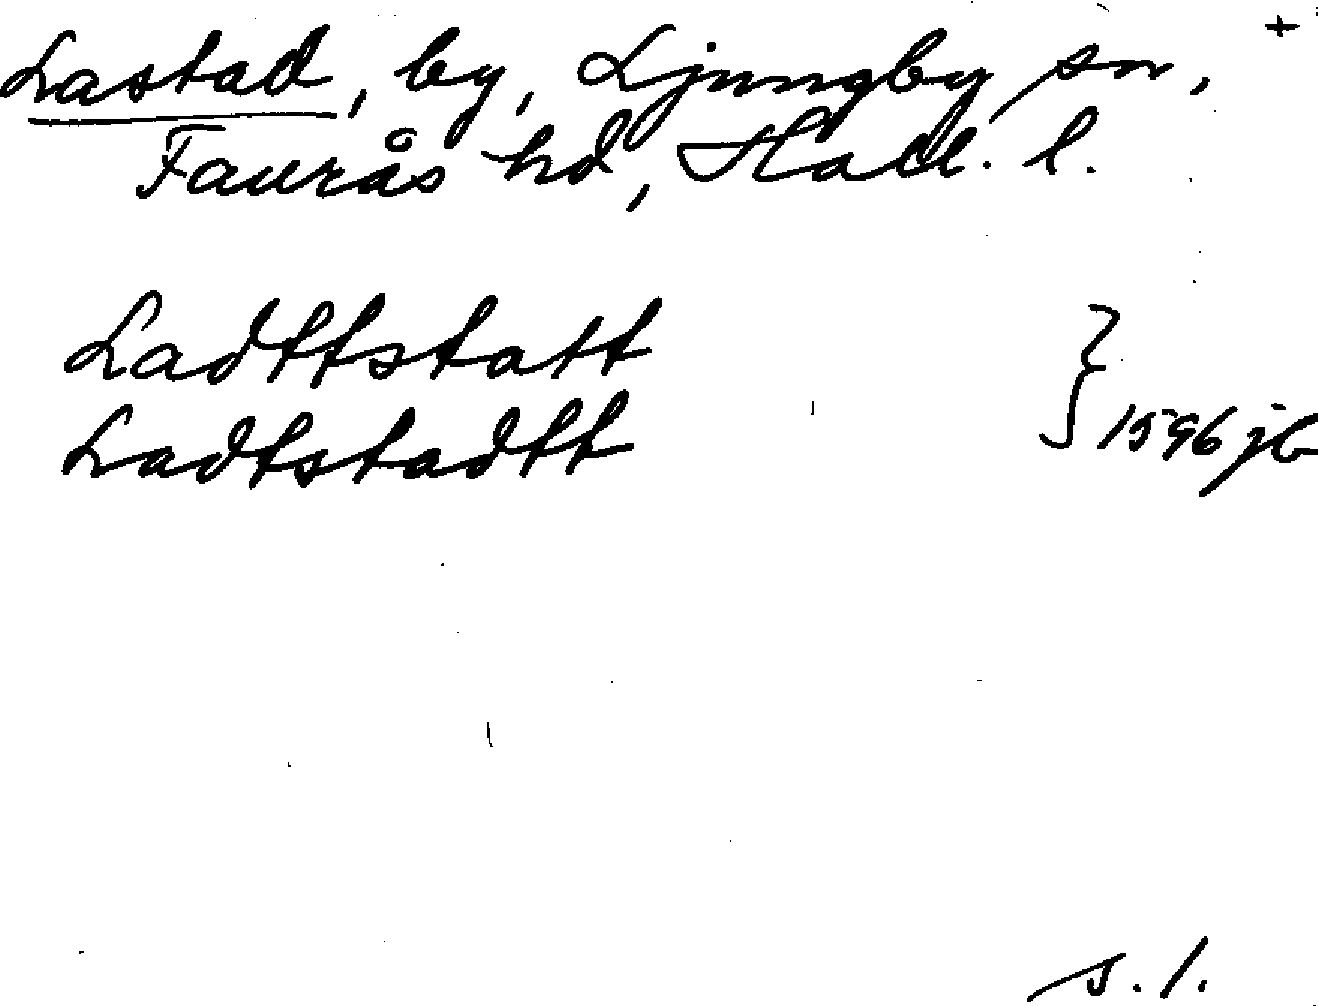 +
Lastad, by, Ljungby sn,
Faurås hd, Hall. l.
Ladttstatt
Ladtstadtt
} 1596 jb
s. 1.